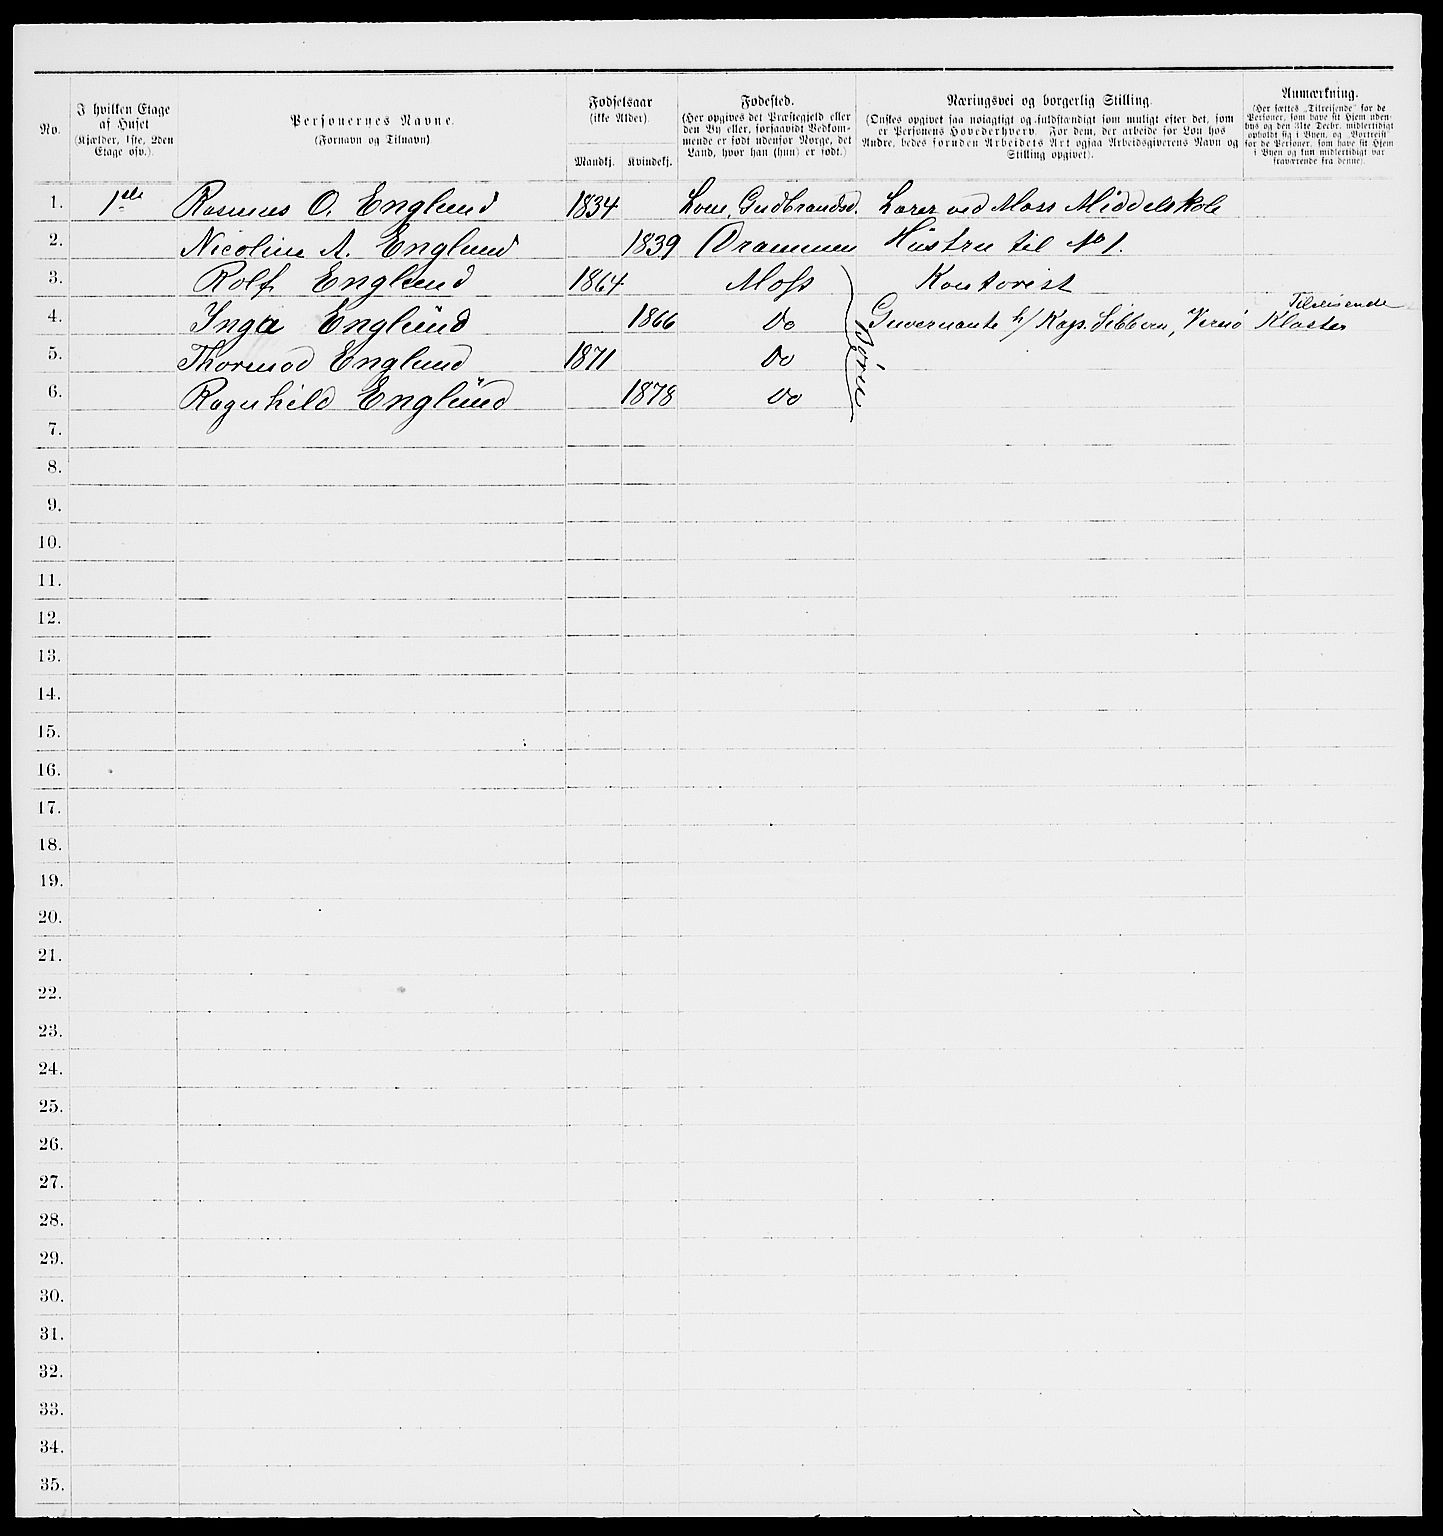 No.
I hvilken Etage
af Huset
(Kjælder, 1ste, 2den
Etage osv.).
Personernes Navne.
(Fornavn og Tilnavn)
Fødselsaar
(ikke Alder).
Mandkj. Kvindekj.
Fødested.
(Her opgives det Præstegjeld eller
den By eller, forsaavidt Vedkom-
mende er født udenfor Norge, det
Land, hvor han (hun) er født.)
Næringsvei og borgerlig Stilling.
(Ønskes opgivet saa nøiagtigt og fuldstændigt som muligt efter det, som
er Personens Hovederhverv. For dem, der arbeide for Løn hos
Andre, bedes foruden Arbeidets Art ogsaa Arbeidsgiverens Navn og
Stilling opgivet).
Anmærkning.
(Her sættes „Tilreisende" for de
Personer, som have sit Hjem uden-
bys og den 31te Decbr. midlertidigt
opholdt sig i Byen, og „Bortreist"
for de Personer, som have sit Hjem
i Byen og kun midlertidigt var
fraværende fra denne).
1. 1ste Rasmus O. Englund 1834 Lom, Gudbrandsd. Lærer ved Moss Middelskole
2. Nicoline A. Englund 1839 Drammen Hustru til No 1.
3. Rolf Englund 1864 Moss Kontorist
4. Inga Englund 1866 Do Guvernante h/ Kap. Sibbern, Værnø Tilreisende Kloster
5. Thormod Englund 1871 Do
6. Ragnhild Englund 1878 Do
Børn
7.
8.
9.
10.
11.
12.
13.
14.
15.
16.
17.
18.
19.
20.
21.
22.
23.
24.
25.
26.
27.
28.
29.
30.
31.
32.
33.
34.
35.